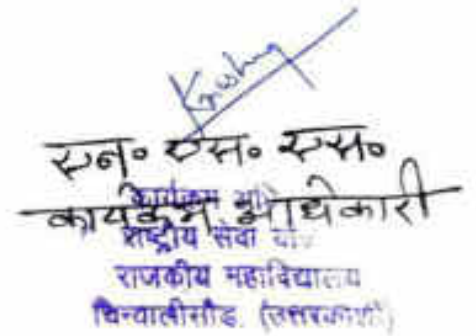 एन॰ एस॰ एस॰
कार्यक्रम अधिकारी
कार्यक्रम
राष्ट्रीय सेवा
राजकीय महाविद्यालय
चिन्यालीसौड़ (उत्तरकाशी)